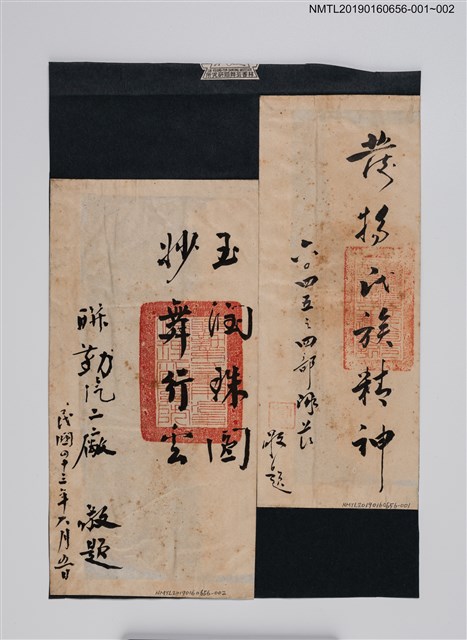 NMTL20190160656-001~002
發揚民族精神
六〇四五之四部隊
敬題
NMTL20190160656-001
玉潤珠圓
妙舞行雲
聯勤汽二廠 敬題
民國四十三年六月五日
NMTL20190160656-002